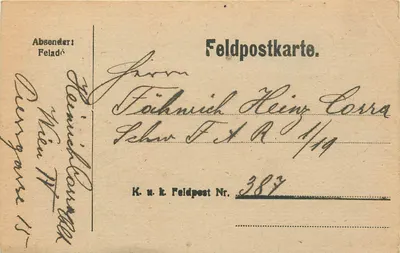 Absender:
Feladó
Heinrich
Wien
15
Feldpostkarte.
Herrn
Fähnrich Heinz Corra
Schw F A R. 1/19
K. u. k. Feldpost Nr. 387